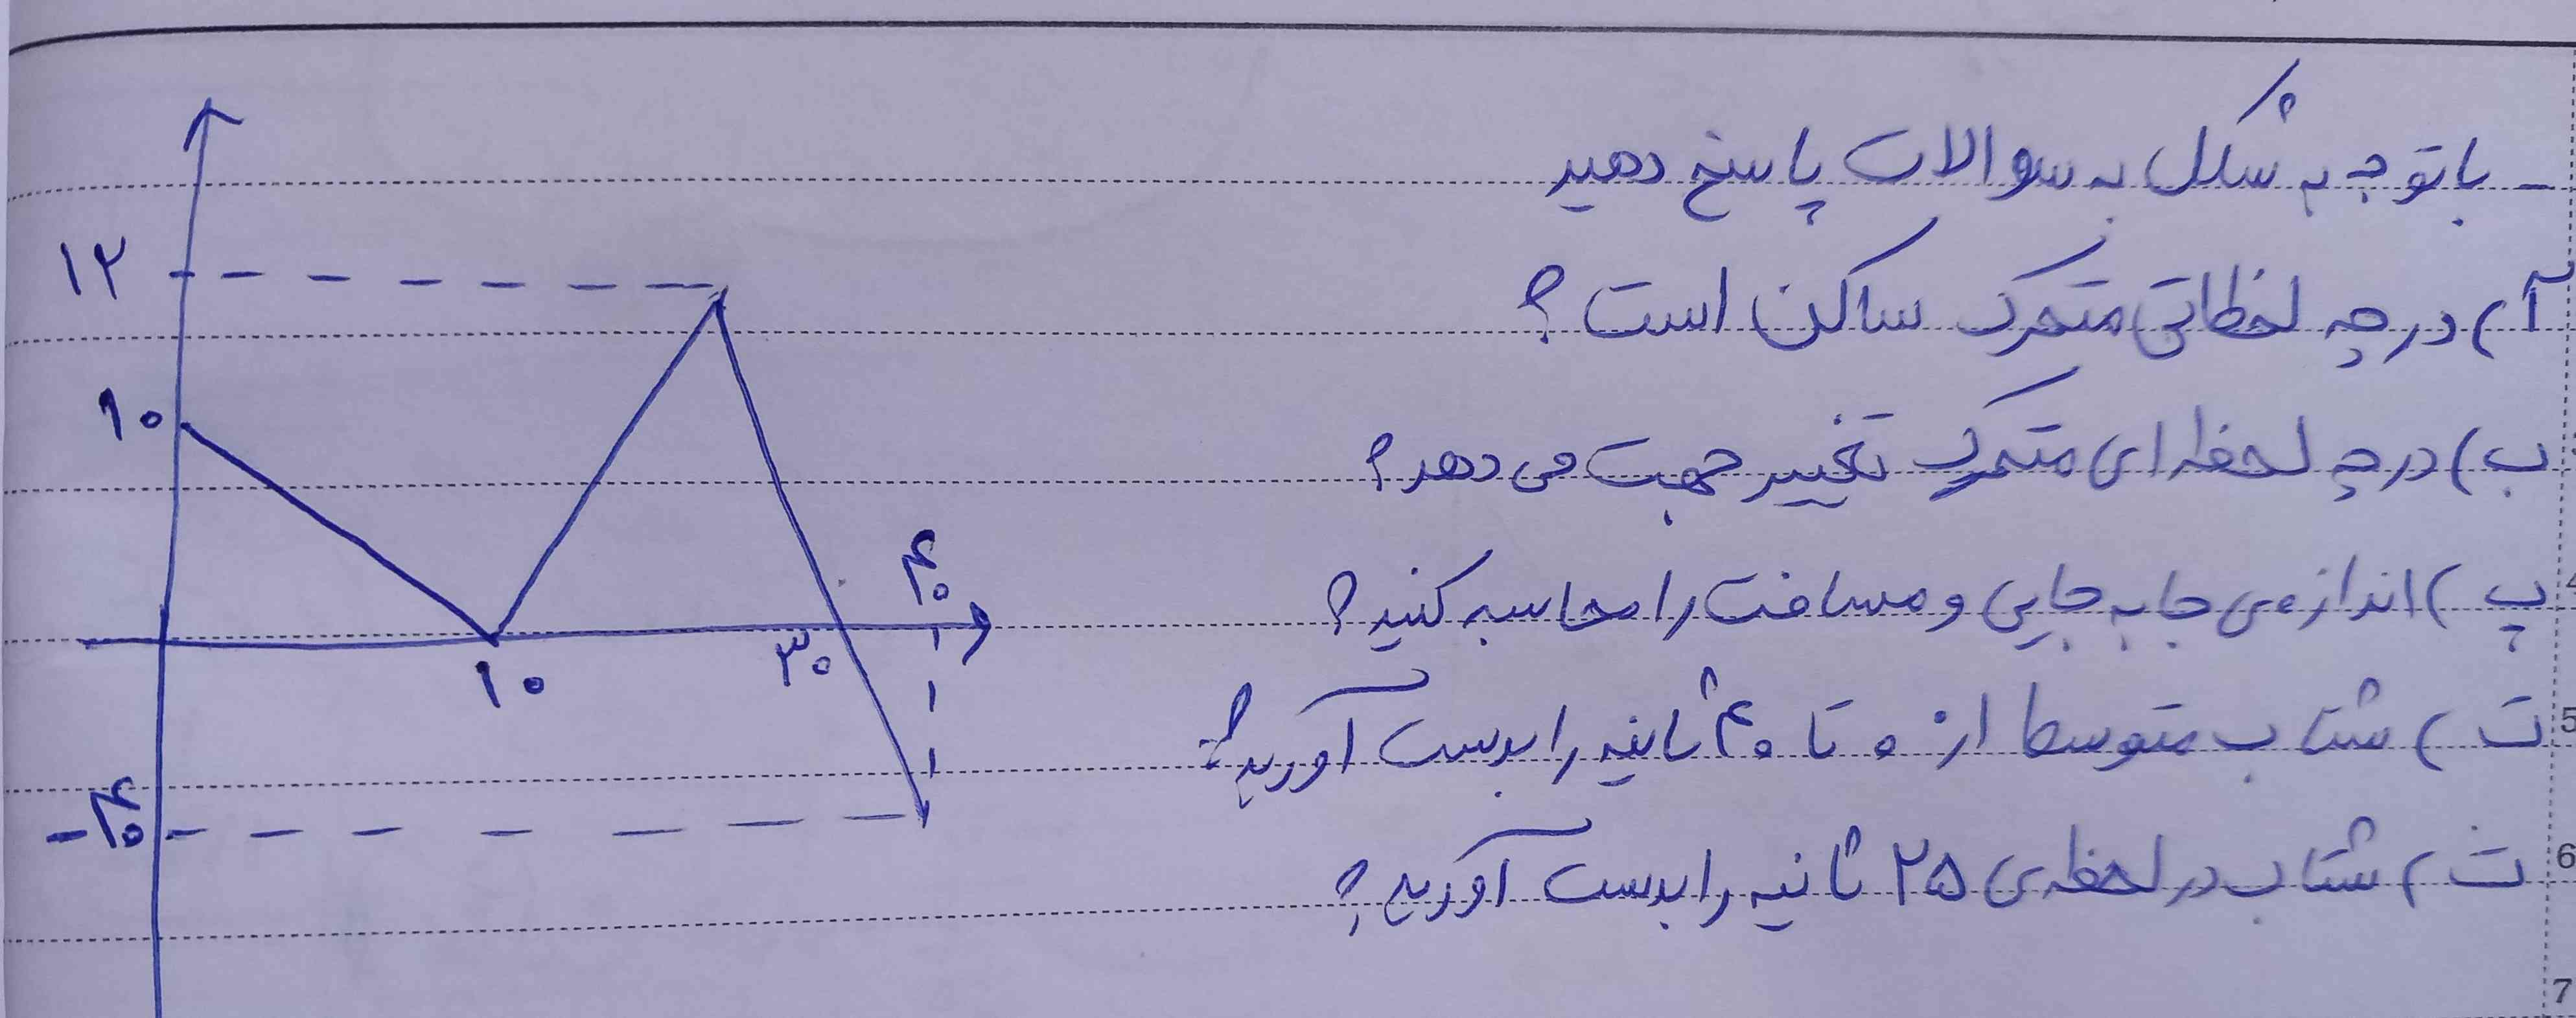 - با توجه به شکل به سوالات پاسخ دهید
آ) در چه لحظاتی متحرک ساکن است؟
ب) در چه لحظه ای متحرک تغییر جهت می دهد؟
پ) اندازه ی جا به جایی و مسافت را محاسبه کنید؟
ت) شتاب متوسط از ۰ تا ۴۰ ثانیه را بدست آورید؟
ث) شتاب در لحظه ی ۲۵ ثانیه را بدست آورید؟
۱۲
۱۰
۴۰
۱۰
۳۰
-۴۰
4
5
6
7